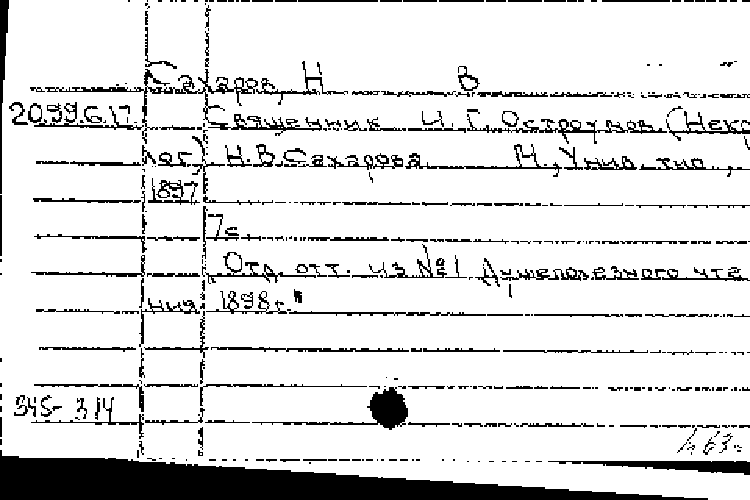 Сахаров, Н В
2099.6.17 Священник И. Г. Остроумов. (Некро
лог) Н.В. Сахарова. М., Унив. тип.,
1897
7с.
"Отд. отт. из №1 Душеполезного чте
ния 1898г."
345-314